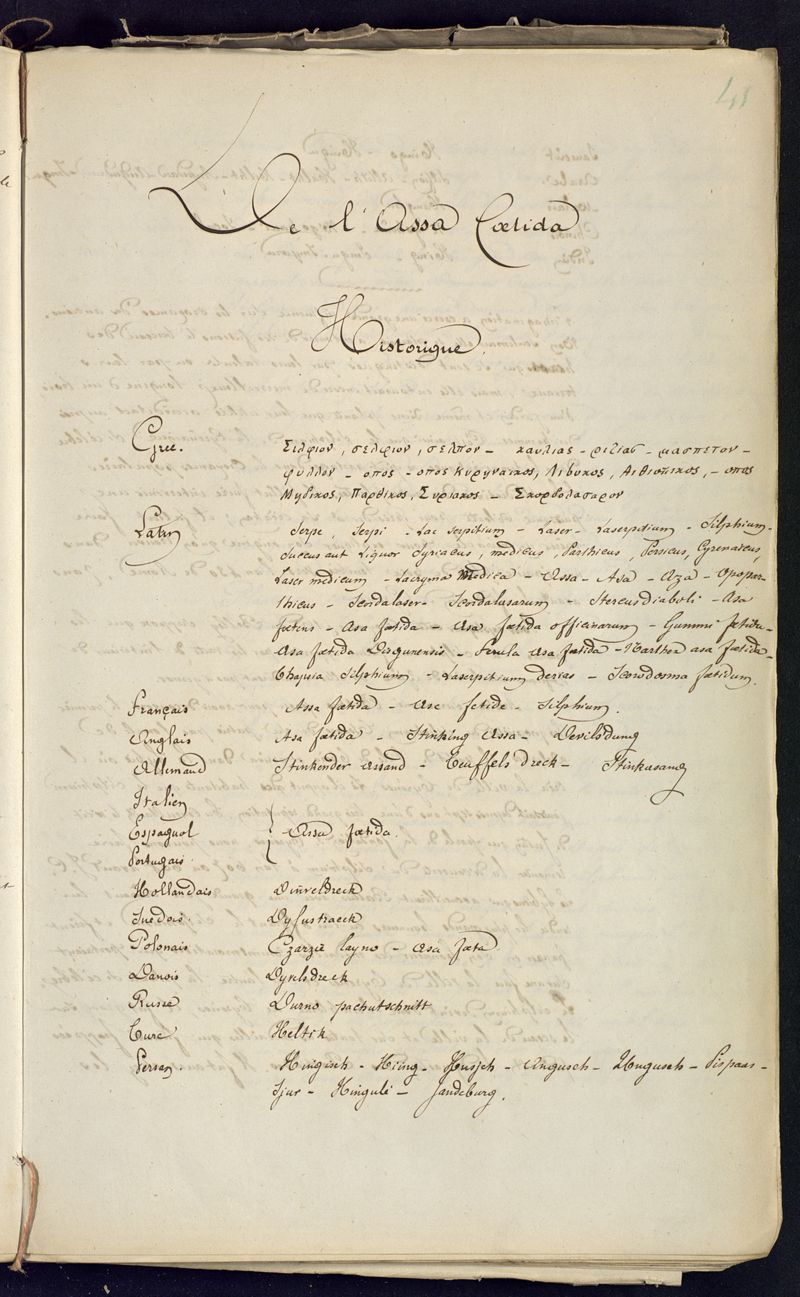 41
De l'Assa Fœtida
Historique.
Grec. Σιλφιον, σελφιον, σελπον – καυλιας – ριζιας – μασπετον –
φυλλον – οπος – οπος Κυρηναικος, Λιβυκος, Αιθιοπικος, – οπος
Μηδικος, Παρθικος, Συριακος – Σκορδολασαρον
Latin Serpe, Serpi – Lac serpitium – Laser – Laserpitium – Silphium –
Succus aut Liquor Syriacus, medicus, Parthicus, Persicus, Cyrenaicus,
Laser medicum – Lacryma Medica – Assa – Asa – Aza – Opopar-
thicus – Scordolaser – Scordolasarum – Stercus diaboli – Asa
fœtens – Asa fœtida – Asa fœtida officinarum – Gummi fœtida –
Asa fœtida Disgunensis – Ferula asa fœtida – Narthex asa fœtida –
Thapsia Silphium – Laserpitium derias – Scorodosma fœtidum.
Français Assa fœtida – Ase fetide – Silphium.
Anglais Asa fœtida – Stinking Assa – Devilsdung
Allemand Stinkender assand – Teuffels dreck – Stinkasand
Italien
Espagnol } Assa fœtida.
Portugais.
Hollandais Duivelsdreck
Suédois. Dyfvelstraeck
Polonais Czarzie layno – Asa fœta
Danois Dyvelsdreck
Russe Durno pachutschnitt
Turc Heltik
Persan. Hingisch – Hiing – Husjeh – Angusch – Ungusch – Pispaas –
Sjur – Hingule – Jandeburg.